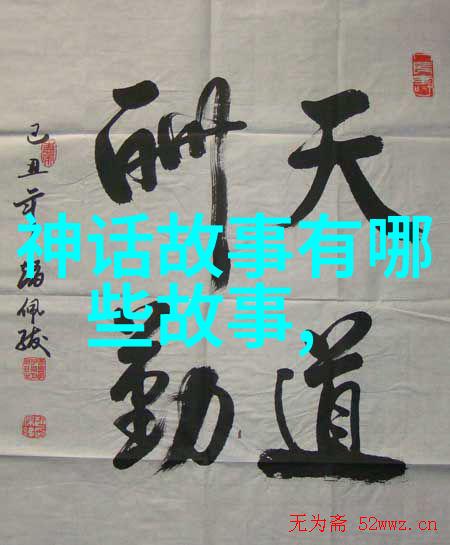 天道
酬勤
己丑佩
神话故事有哪
些故事,
无为斋 52wwz.cn